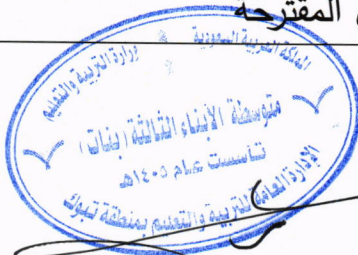 المقترحه
المملكة العربية السعودية
وزارة التربية والتعليم
متوسطة الأبناء الثالثة (بنات)
تأسست عام ١٤٠٥هـ
الإدارة العامة للتربية والتعليم بمنطقة تبوك